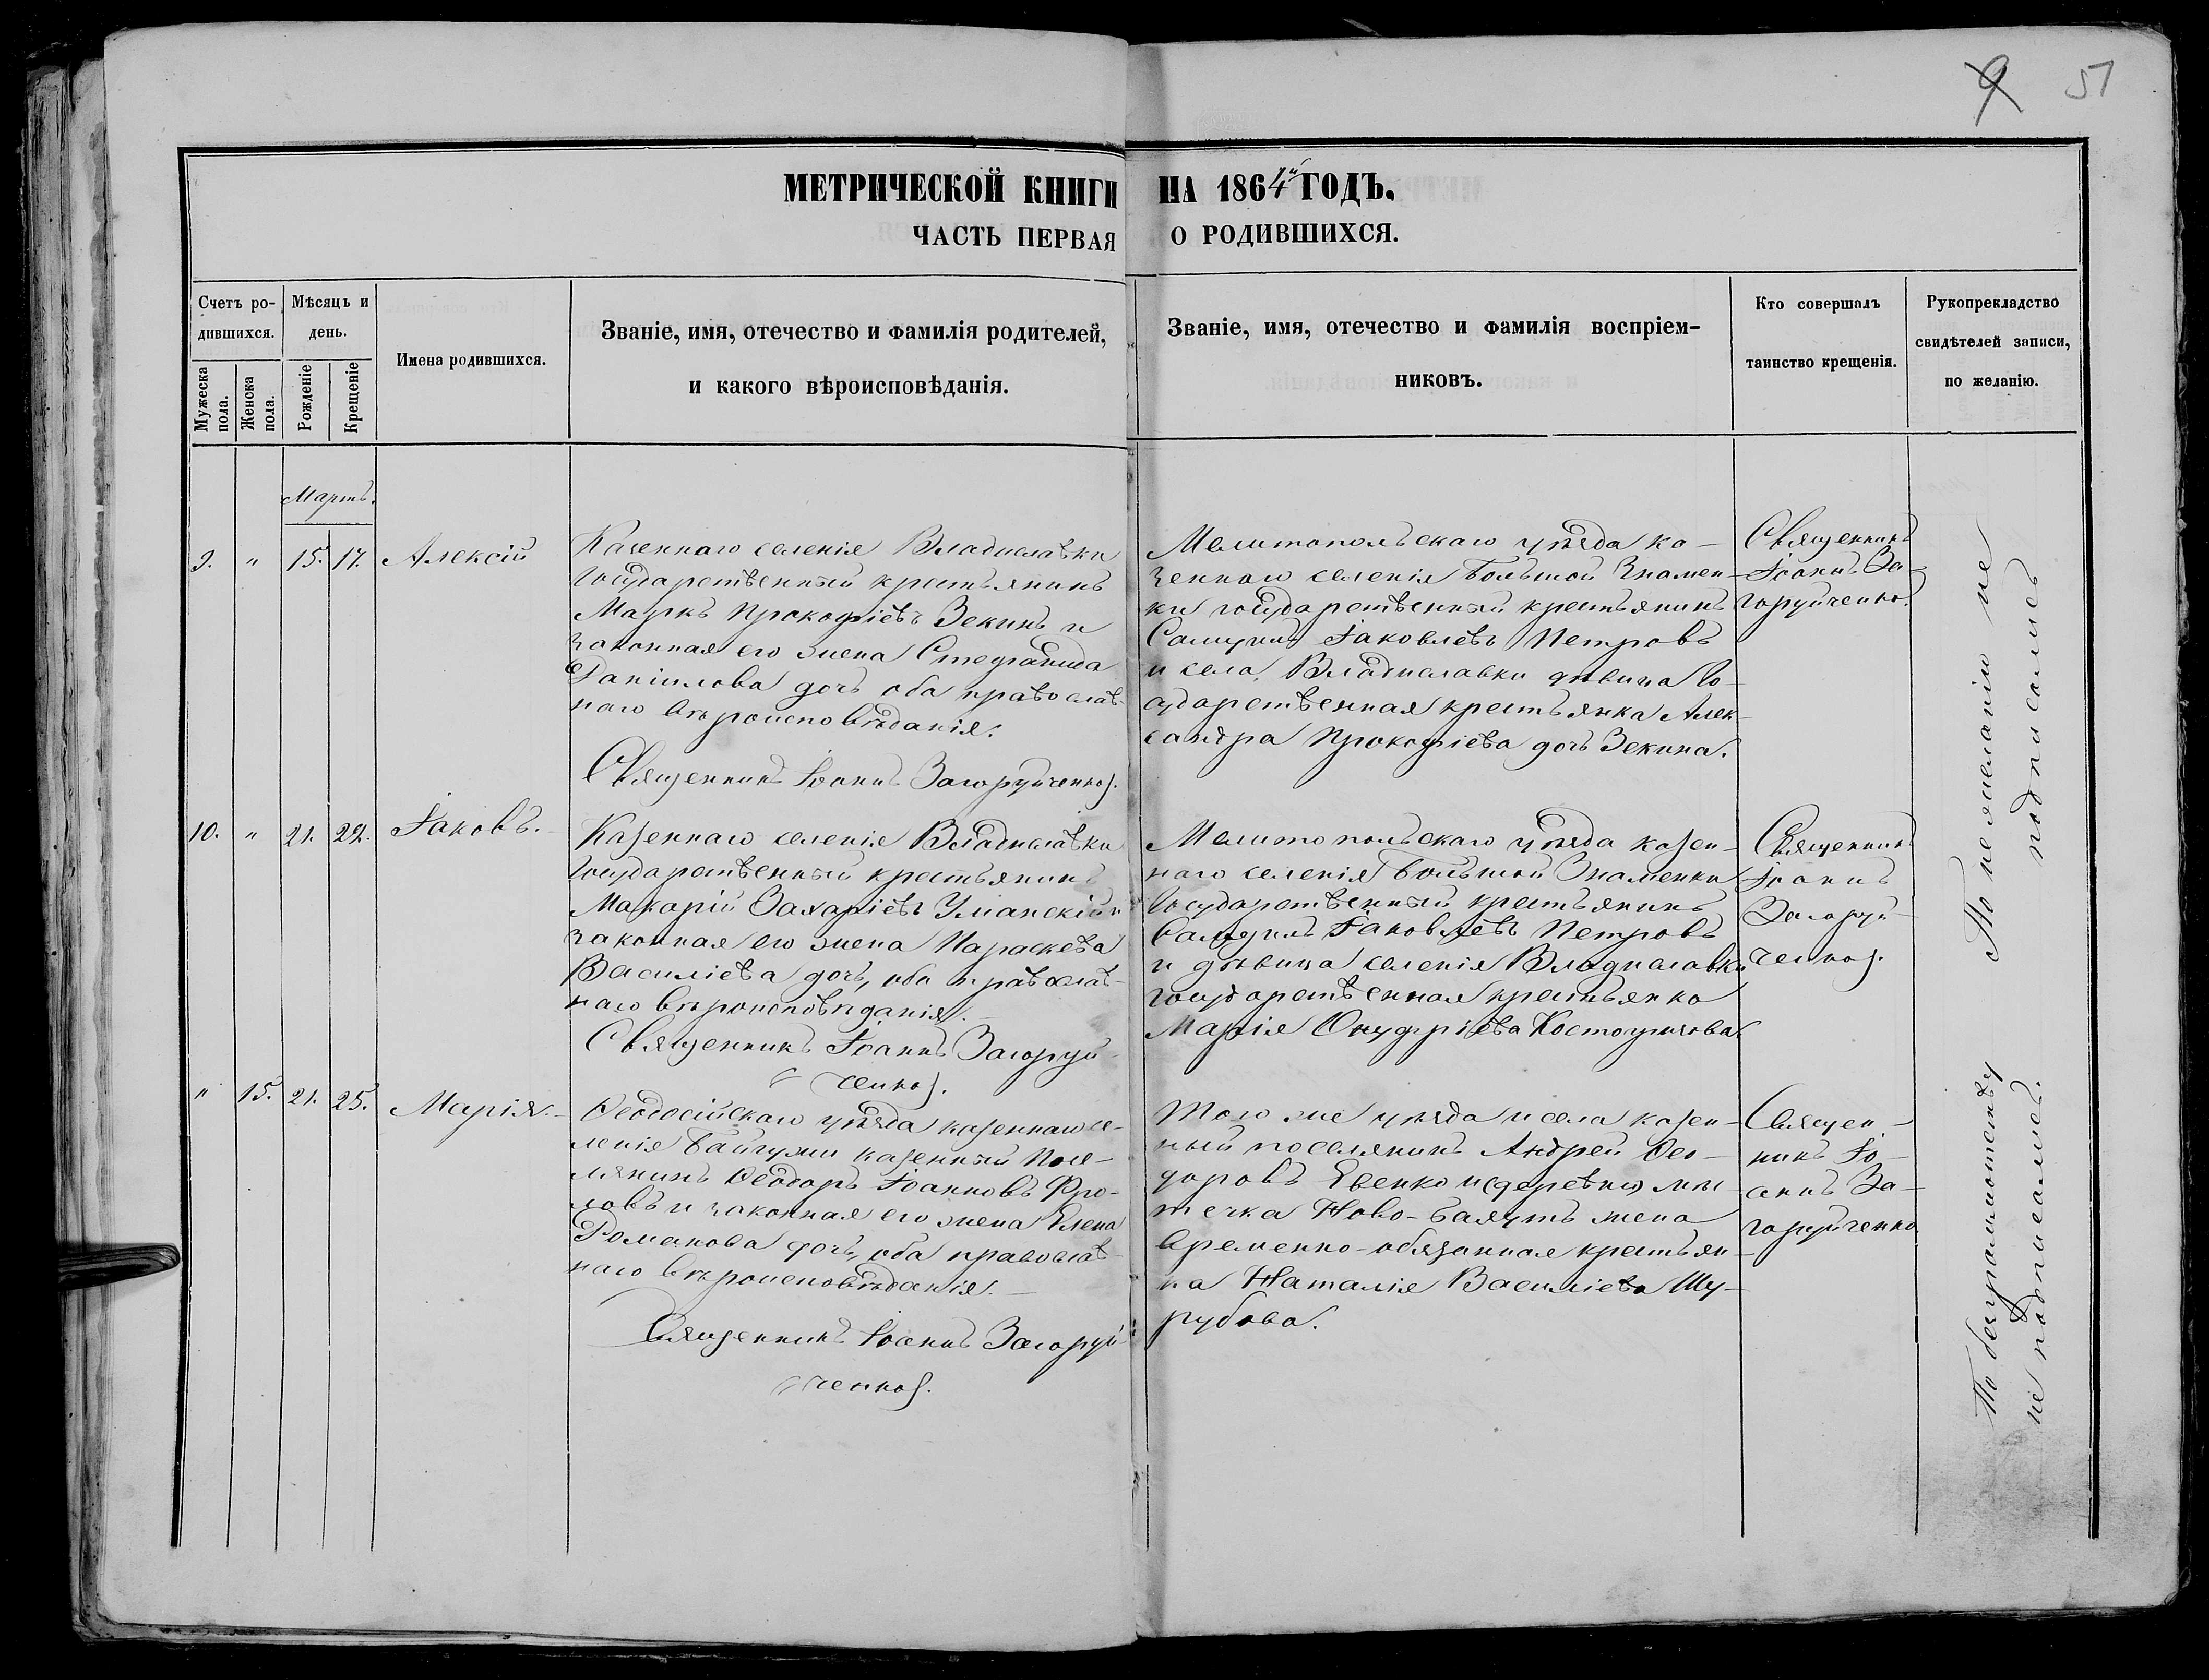 9 51
МЕТРИЧЕСКОЙ КНИГИ НА 1864й ГОДЪ.
ЧАСТЬ ПЕРВАЯ О РОДИВШИХСЯ.
Счетъ ро-
дившихся.
Мужеска
пола.
Женска
пола.
Мѣсяцъ и
день.
Рожденіе
Крещеніе
Имена родившихся.
Званіе, имя, отечество и фамилія родителей,
и какого вѣроисповѣданія.
Званіе, имя, отечество и фамилія воспріем-
никовъ.
Кто совершалъ
таинство крещенія.
Рукоприкладство
свидѣтелей записи,
по желанію.
Мартъ.
9. " 15. 17. Алексій
Казеннаго селенія Владиславки
Государственный крестьянинъ
Маркъ Прокофіевъ Зекинъ и
законная его жена Стефанида
Даніилова дочь оба православ-
наго вѣроисповѣданія.
Священникъ Іоаннъ Загоруйченко.
Мелитопольскаго уѣзда ка-
зеннаго селенія Большой Знамен-
ки государственный крестьянинъ
Іаковлевъ Петровъ
и села Владиславки дѣвица Го-
сударственная крестьянка Алек-
сандра Прокофіева дочь Зекина.
Священникъ
Іоаннъ За-
горуйченко.
10. " 21. 22. Іаковъ.
Казеннаго селенія Владиславки
Государственный крестьянинъ
Макарій Захаріевъ Уманскій и
законная его жена Параскева
Василіева дочь, оба православ-
наго вѣроисповѣданія.
Священникъ Іоаннъ Загоруй-
ченко.
Мелитопольскаго уѣзда казен-
наго селенія Большой Знаменки
Государственный крестьянинъ
Іаковлевъ Петровъ
и дѣвица селенія Владиславки
государственная крестьянка
Марія Онуфріева
Священникъ
Іоаннъ
Загоруй-
ченко.
" 15. 21. 25. Марія.
Ѳеодосійскаго уѣзда казеннаго се-
ленія казенный посе-
лянинъ Ѳеодоръ Іоанновъ Фро-
ловъ и законная его жена Елена
Романова дочь, оба православ-
наго вѣроисповѣданія.
Священникъ Іоаннъ Загоруй-
ченко.
Того же уѣзда и села казен-
ный поселянинъ Андрей Ѳео-
доровъ Евенко и деревни
Ново- жена
временно-обязанная крестьян-
ка Наталія Василіева Шу-
рубова.
Священ-
никъ Іо-
аннъ За-
горуйченко
По безграмотству По не желанію не
не подписались. подписались